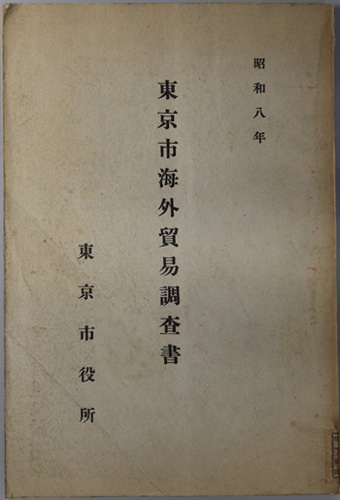 昭和八年
東京市海外貿易調査書
東京市役所